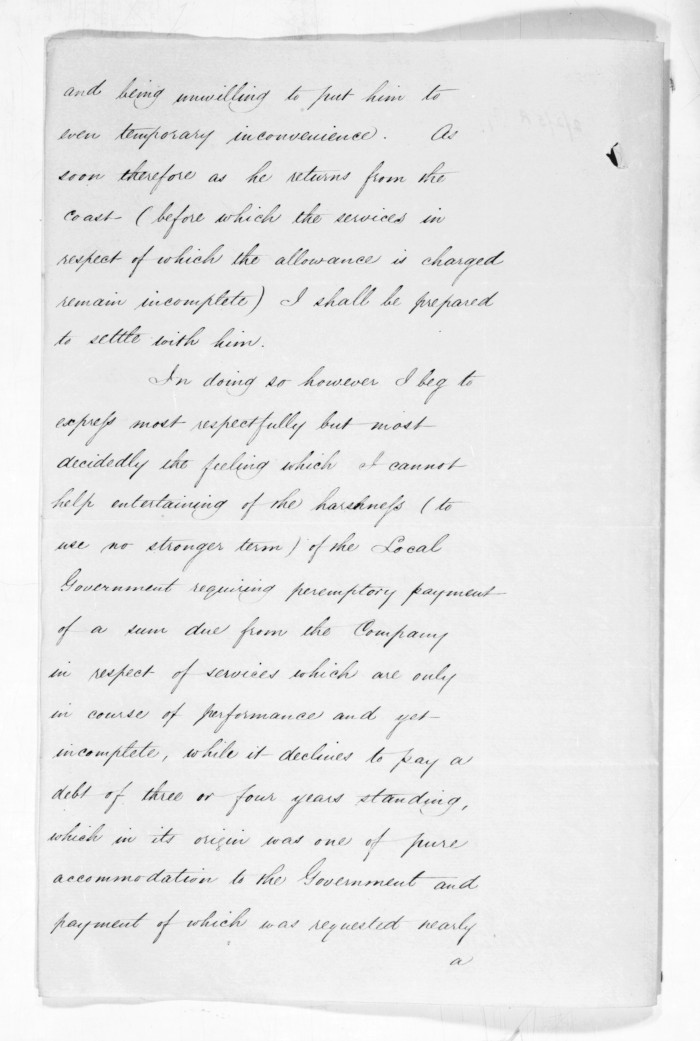 and being unwilling to put him to
even temporary inconvenience. As
soon therefore as he returns from the
coast (before which the services in
respect of which the allowance is charged
remain incomplete) I shall be prepared
to settle with him.
In doing so however I beg to
express most respectfully but most
decidedly the feeling which I cannot
help entertaining of the harshness (to
use no stronger term) of the Local
Government requiring peremptory payment
of a sum due from the Company
in respect of services which are only
in course of performance and yet
incomplete, while it declines to pay a
debt of three or four years standing,
which in its origin was one of pure
accommodation to the Government and
payment of which was requested nearly
a